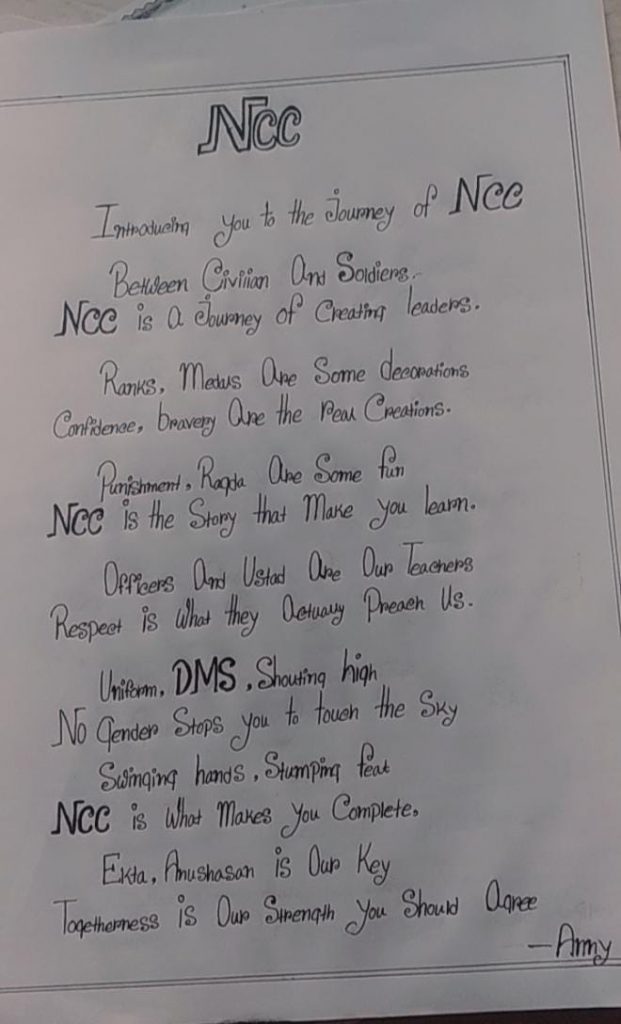 NCC
Introducing you to the Journey of NCC
Between Civilian And Soldiers.
NCC is a Journey of Creating leaders.
Ranks, Medals Are Some decorations
Confidence, bravery Are the real Creations.
Punishment, Ragda Are Some fun
NCC is the Story that Make you learn.
Officers And Ustad Are Our Teachers
Respect is What they Actually Preach Us.
Uniform, DMS, Shouting high
No Gender Stops you to touch the Sky
Swinging hands, Stumping feat
NCC is What Makes You Complete.
Ekta, Anushasan is Our Key
Togetherness is Our Strength You Should Agree
—Army